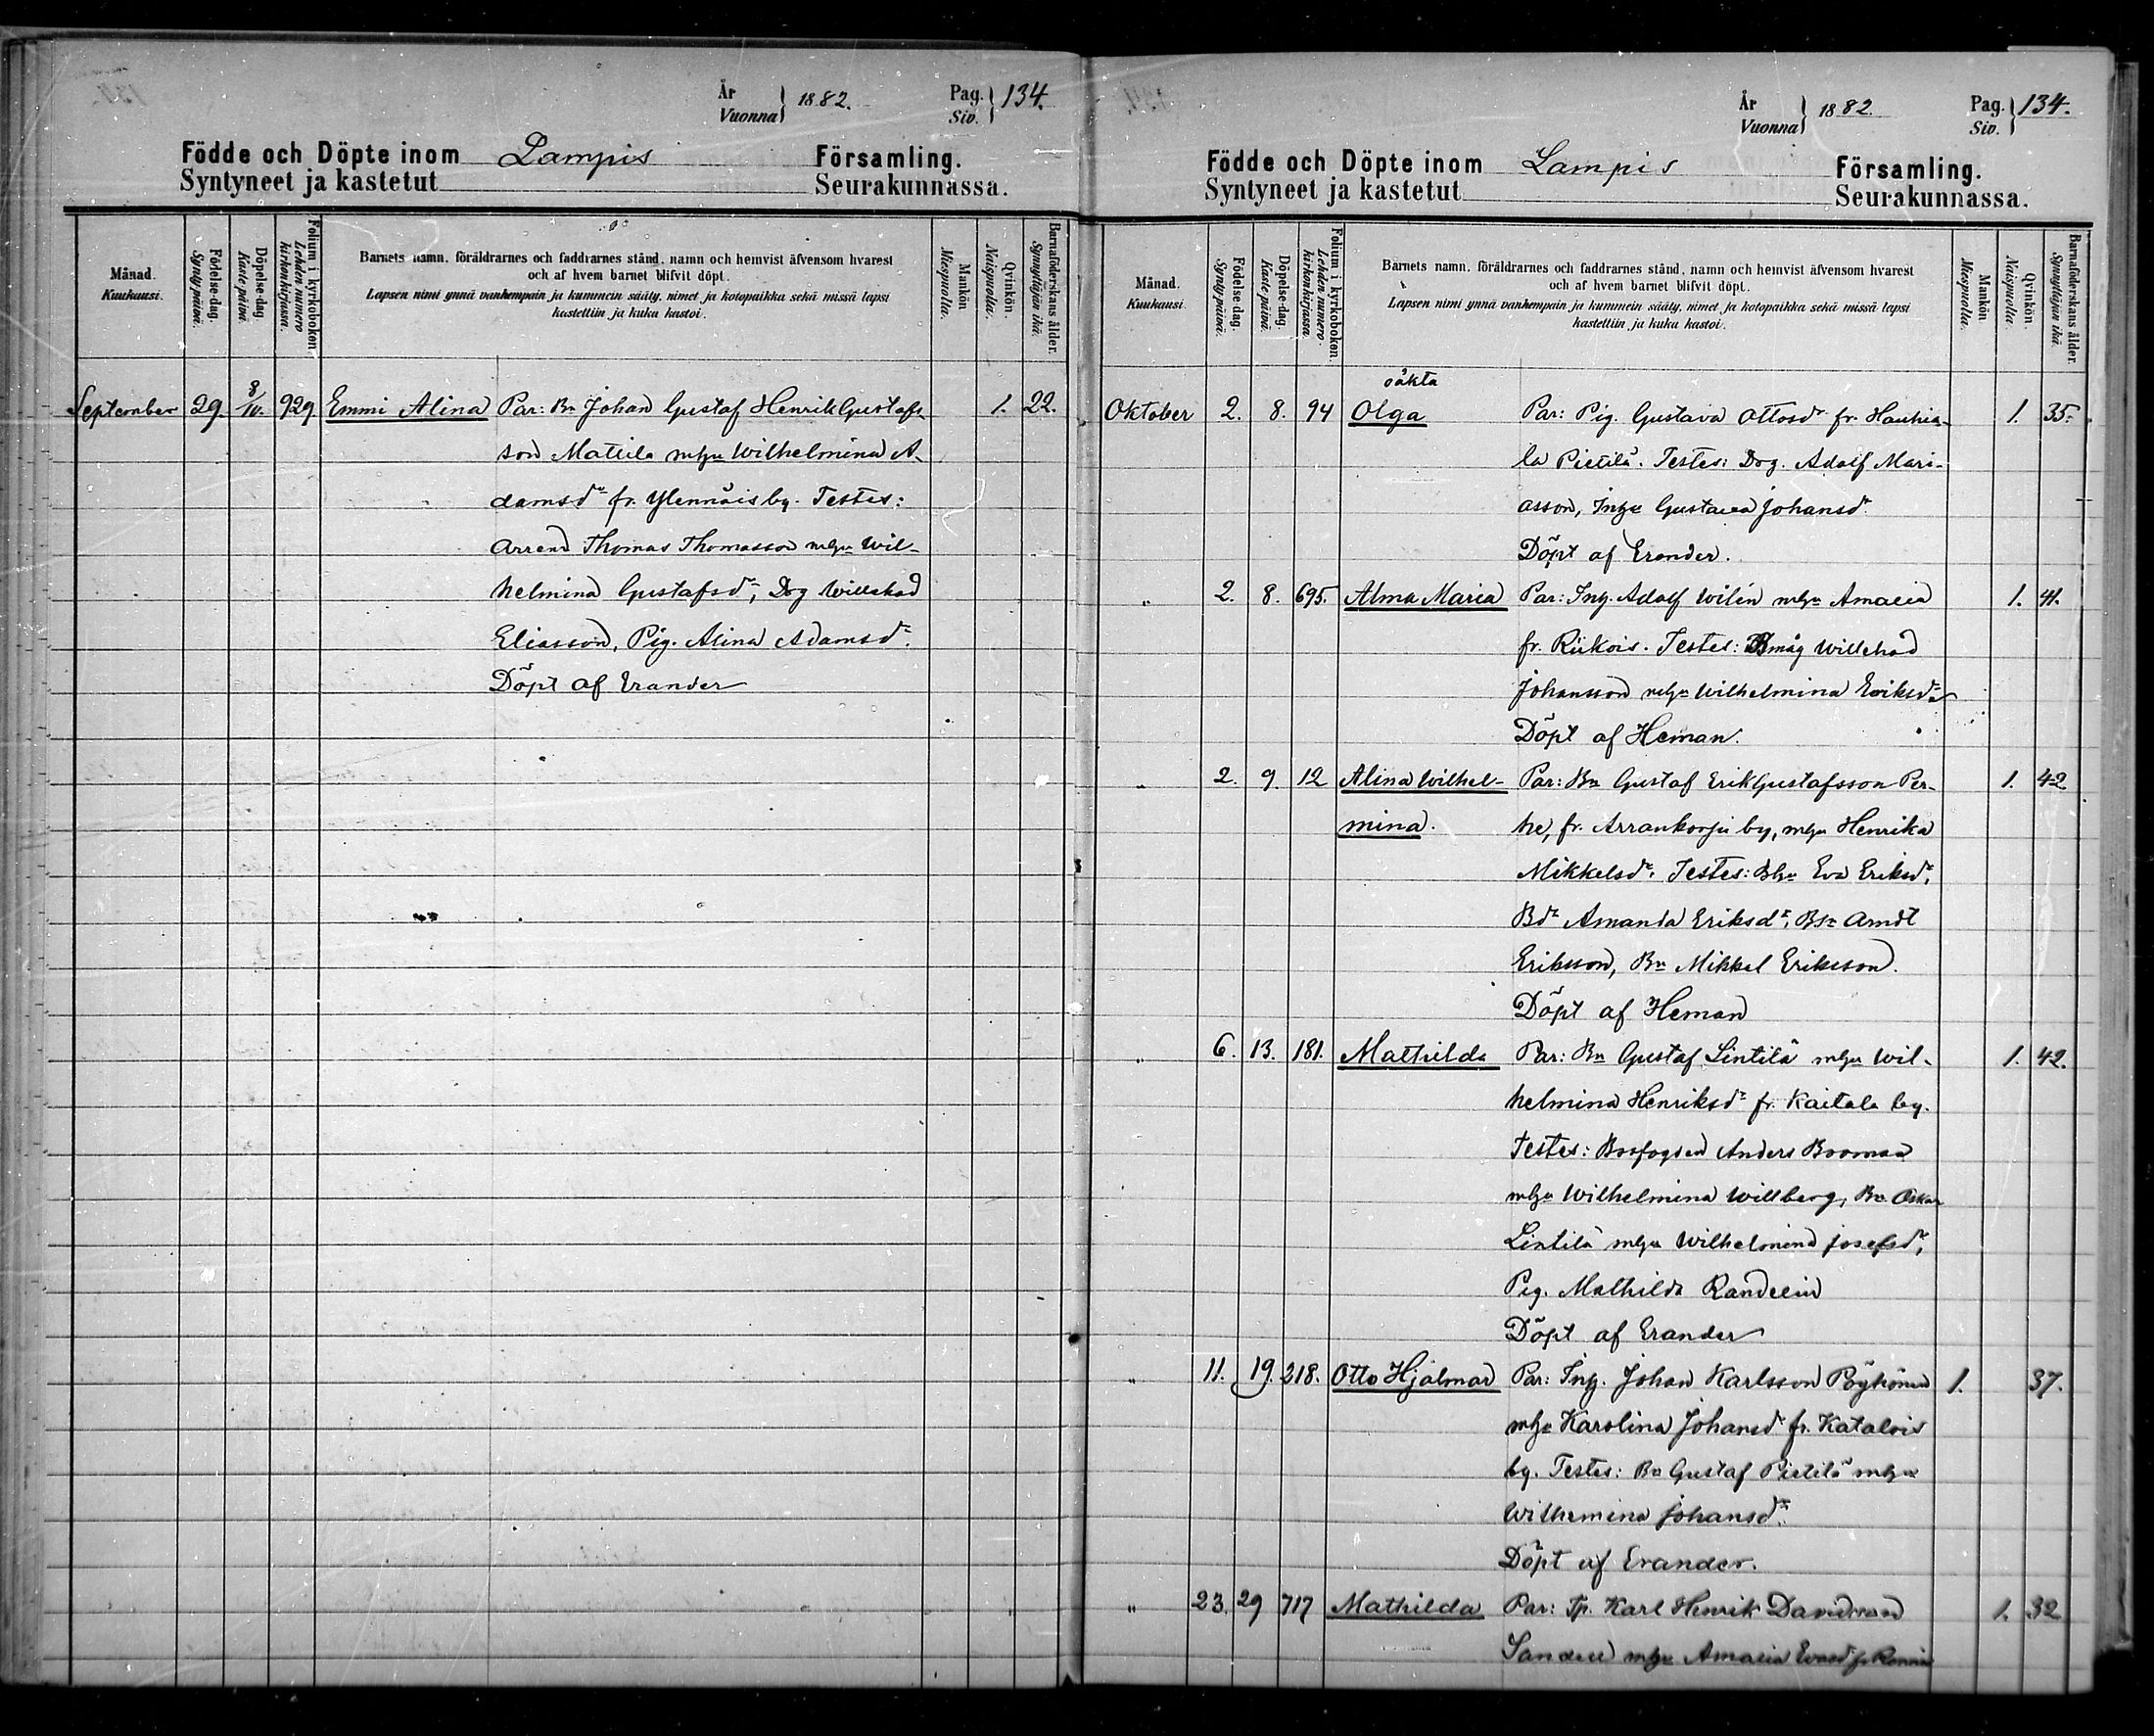 År
Vuonna } 1882. Pag.
Siv. } 134.
Födde och Döpte inom Lampis Församling.
Syntyneet ja kastetut Seurakunnassa.
Månad.
Kuukausi.
Födelse-dag.
Synty-päivä.
Döpelse-dag.
Kaste-päivä.
Folium i kyrkoboken.
Lehden numero
kirkonkirjassa.
Barnets namn, föräldrarnes och faddrarnes stånd, namn och hemvist äfvensom hvarest
och af hvem barnet blifvit döpt.
Lapsen nimi ynnä vanhempain ja kummein sääty, nimet ja kotopaikka sekä missä lapsi
kastettiin ja kuka kastoi.
Mankön
Miespuolia.
Qvinkön.
Naispuolia.
Barnaföderskans ålder.
Synnyttäjän ikä.
September 29. 8/10. 929 Emmi Alina Par: Bn Johan Gustaf Henrik Gustafs- 1. 22.
son Mattila mhu Wilhelmina A-
damsdr fr. Ylennäis by. Testes:
Arrend Thomas Thomasson mhu Wil-
helmina Gustafsdr, Drg Willehad
Eliasson, Pig. Alina Adamsdr.
Döpt af Erander
År
Vuonna } 1882. Pag.
Siv. } 134.
Födde och Döpte inom Lampis Församling.
Syntyneet ja kastetut Seurakunnassa.
Månad.
Kuukausi.
Födelse-dag.
Synty-päivä.
Döpelse-dag.
Kaste-päivä.
Folium i kyrkoboken.
Lehden numero
kirkonkirjassa.
Barnets namn, föräldrarnes och faddrarnes stånd, namn och hemvist äfvensom hvarest
och af hvem barnet blifvit döpt.
Lapsen nimi ynnä vanhempain ja kummein sääty, nimet ja kotopaikka sekä missä lapsi
kastettiin ja kuka kastoi.
Mankön
Miespuolia.
Qvinkön.
Naispuolia.
Barnaföderskans ålder.
Synnyttäjän ikä.
oäkta
Oktober 2. 8. 94 Olga Par: Pig. Gustava Ottosdr fr. Hauhia- 1. 35.
la Pietilä. Testes: Drg. Adolf Mari-
asson, Inhu Gustava Johansdr.
Döpt af Erander.
" 2. 8. 695. Alma Maria Par: Inh. Adolf Wilén mhu Amalia 1. 41.
fr. Riikois. Testes: Bmåg Willehad
Johansson mhu Wilhelmina Eriksdr
Döpt af Heman.
" 2. 9. 12 Alina Wilhel- Par: Bn Gustaf Erik Gustafsson Per- 1. 42.
mina. he, fr. Arrankorpi by, mhu Henrika
Mikkelsdr. Testes: Bhu Eva Eriksdr,
Bdr Amanda Eriksdr, Bsn Arndt
Eriksson, Bn Mikkel Eriksson.
Döpt af Heman
" 6. 13. 181. Mathilda Par: Bn Gustaf Lintilä mhu Wil- 1. 42.
helmina Henriksdr fr. Kaitala by.
Testes: Anders Broman
mhu Wilhelmina Willberg, Bn Oskar
Lintilä mhu Wilhelmina Josefsdr,
Pig. Mathilda Randelin
Döpt af Erander
" 11. 19. 218. Otto Hjalmar Par: Inh. Johan Karlsson Pöyhönen 1. 37.
mhu Karolina Johansdr fr. Katalois
by. Testes: Bn Gustaf Pietilä mhu
Wilhemina Johansdr.
Döpt af Erander.
" 23. 29 717 Mathilda Par: Tp. Karl Henrik Davidsson 1. 32
Sandell mhu Amalia fr.